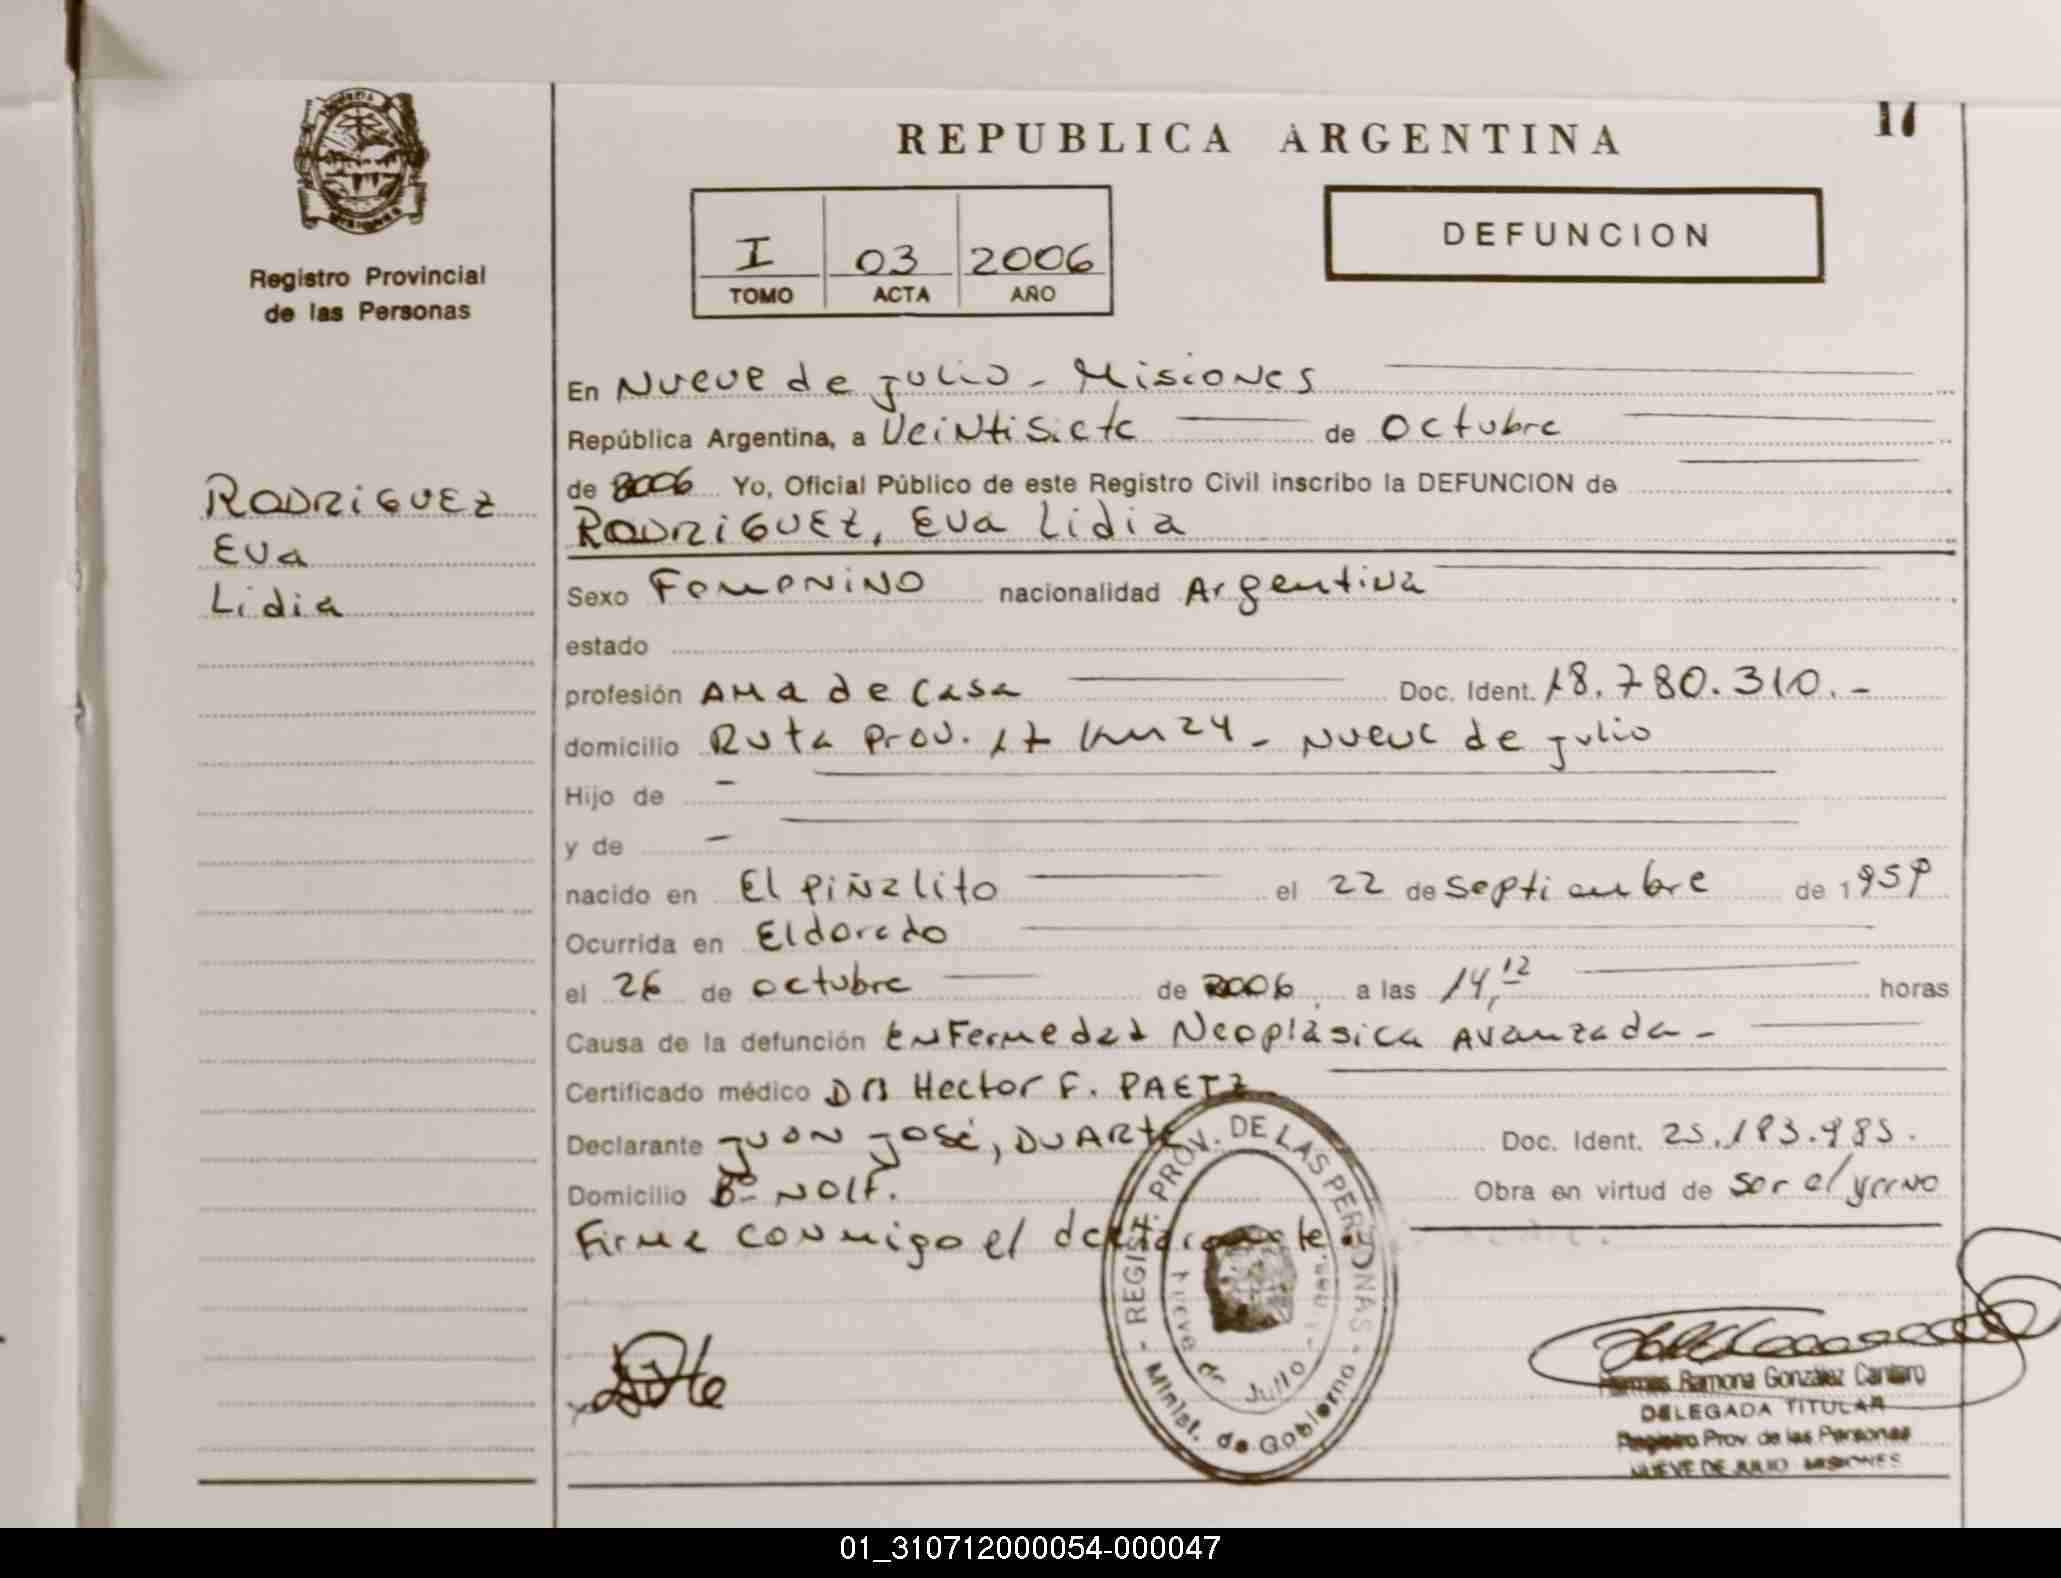 17
REPUBLICA ARGENTINA
Registro Provincial
de las Personas
I 03 2006
TOMO ACTA AÑO
DEFUNCION
RODRIGUEZ
EVA
Lidia
En Nueve de julio - Misiones
República Argentina, a Veintisiete de Octubre
de 2006 Yo, Oficial Público de este Registro Civil inscribo la DEFUNCION de
RODRIGUEZ, EVA Lidia
Sexo Femenino nacionalidad Argentina
estado
profesión AMA de CASA Doc. Ident. 18.780.310.-
domicilio Ruta Prov. 17 Km 24 - Nueve de julio
Hijo de -
y de -
nacido en El Piñalito el 22 de Septiembre de 1959
Ocurrida en Eldorado
el 26 de octubre de 2006 a las 14,12 horas
Causa de la defunción Enfermedad Neoplásica Avanzada -
Certificado médico DR Hector F. PAETZ
Declarante Juan José, DUARTE Doc. Ident. 25.183.985.
Domicilio Bº NOLF. Obra en virtud de Ser el yerno
Firma conmigo el declarante.
- REGIST. PROV. DE LAS PERSONAS -
Nueve de Julio
Minist. de Gobierno
Hermes Ramona González Cantero
DELEGADA TITULAR
Registro Prov. de las Personas
NUEVE DE JULIO MISIONES
01_310712000054-000047